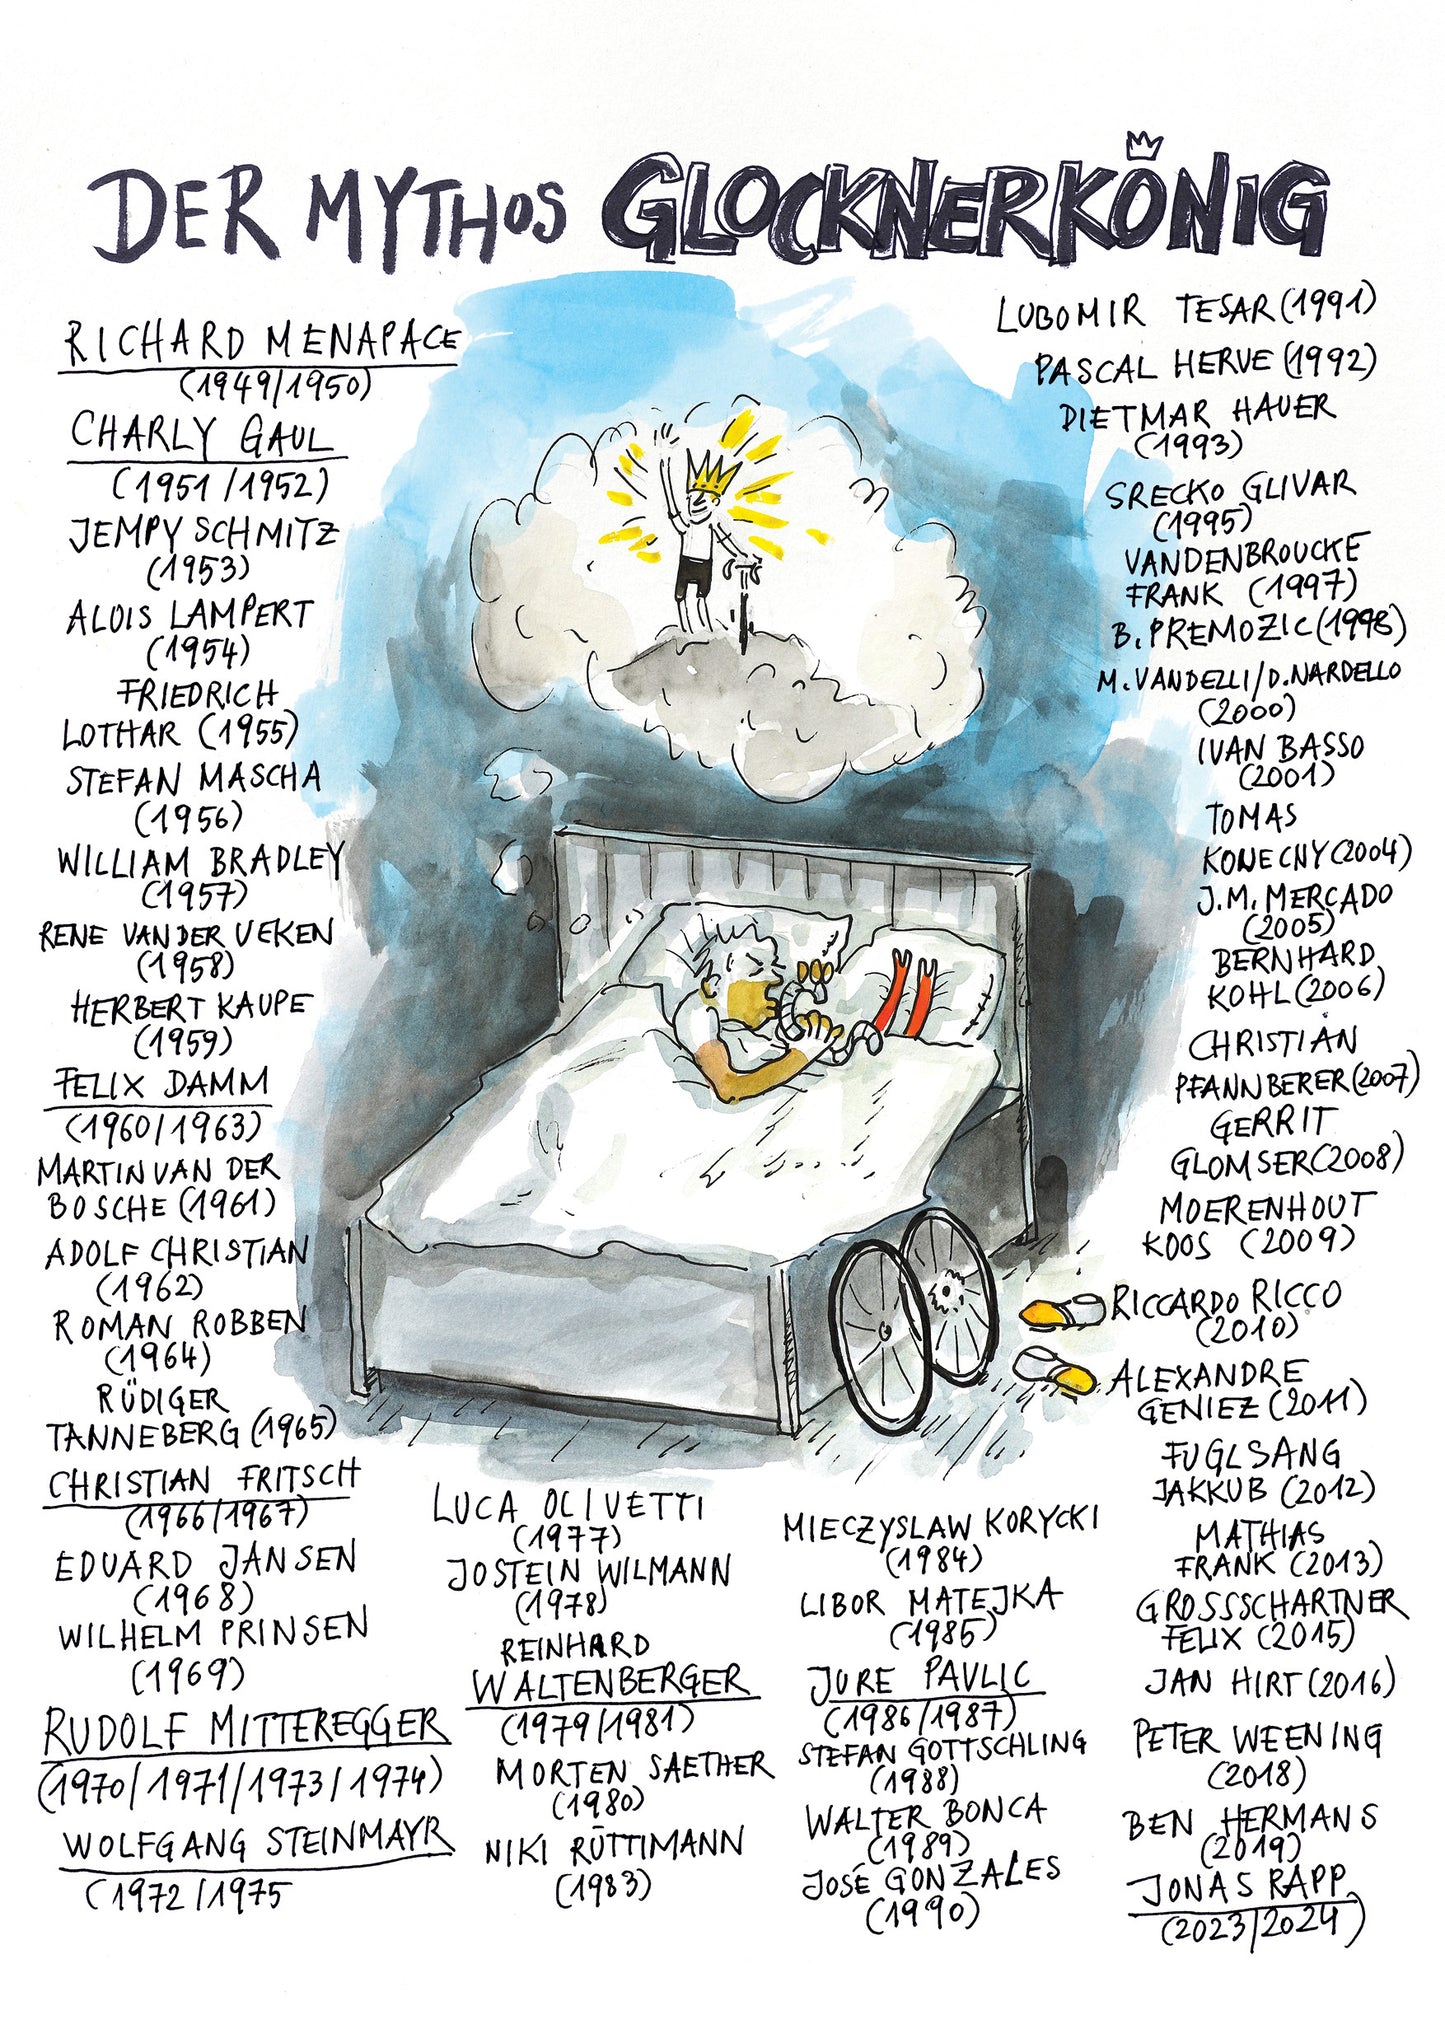 DER MYTHOS GLOCKNERKÖNIG
RICHARD MENAPACE
(1949/1950)
CHARLY GAUL
(1951/1952)
JEMPY SCHMITZ
(1953)
ALOIS LAMPERT
(1954)
FRIEDRICH
LOTHAR (1955)
STEFAN MASCHA
(1956)
WILLIAM BRADLEY
(1957)
RENE VAN DER VEKEN
(1958)
HERBERT KAUPE
(1959)
FELIX DAMM
(1960/1963)
MARTIN VAN DER
BOSCHE (1961)
ADOLF CHRISTIAN
(1962)
ROMAN ROBBEN
(1964)
RÜDIGER
TANNEBERG (1965)
CHRISTIAN FRITSCH
(1966/1967)
EDUARD JANSEN
(1968)
WILHELM PRINSEN
(1969)
RUDOLF MITTEREGGER
(1970/1971/1973/1974)
WOLFGANG STEINMAYR
(1972/1975
LUCA OLIVETTI
(1977)
JOSTEIN WILMANN
(1978)
REINHARD
WALTENBERGER
(1979/1981)
MORTEN SAETHER
(1980)
NIKI RÜTTIMANN
(1983)
MIECZYSLAW KORYCKI
(1984)
LIBOR MATEJKA
(1985)
JURE PAVLIC
(1986/1987)
STEFAN GOTTSCHLING
(1988)
WALTER BONCA
(1989)
JOSÉ GONZALES
(1990)
LUBOMIR TESAR (1991)
PASCAL HERVE (1992)
DIETMAR HAUER
(1993)
SRECKO GLIVAR
(1995)
VANDENBROUCKE
FRANK (1997)
B. PREMOZIC (1998)
M. VANDELLI/D. NARDELLO
(2000)
IVAN BASSO
(2001)
TOMAS
KONECNY (2004)
J.M. MERCADO
(2005)
BERNHARD
KOHL (2006)
CHRISTIAN
PFANNBERER (2007)
GERRIT
GLOMSER (2008)
MOERENHOUT
KOOS (2009)
RICCARDO RICCO
(2010)
ALEXANDRE
GENIEZ (2011)
FUGLSANG
JAKKUB (2012)
MATHIAS
FRANK (2013)
GROSSSCHARTNER
FELIX (2015)
JAN HIRT (2016)
PETER WEENING
(2018)
BEN HERMANS
(2019)
JONAS RAPP
(2023/2024)